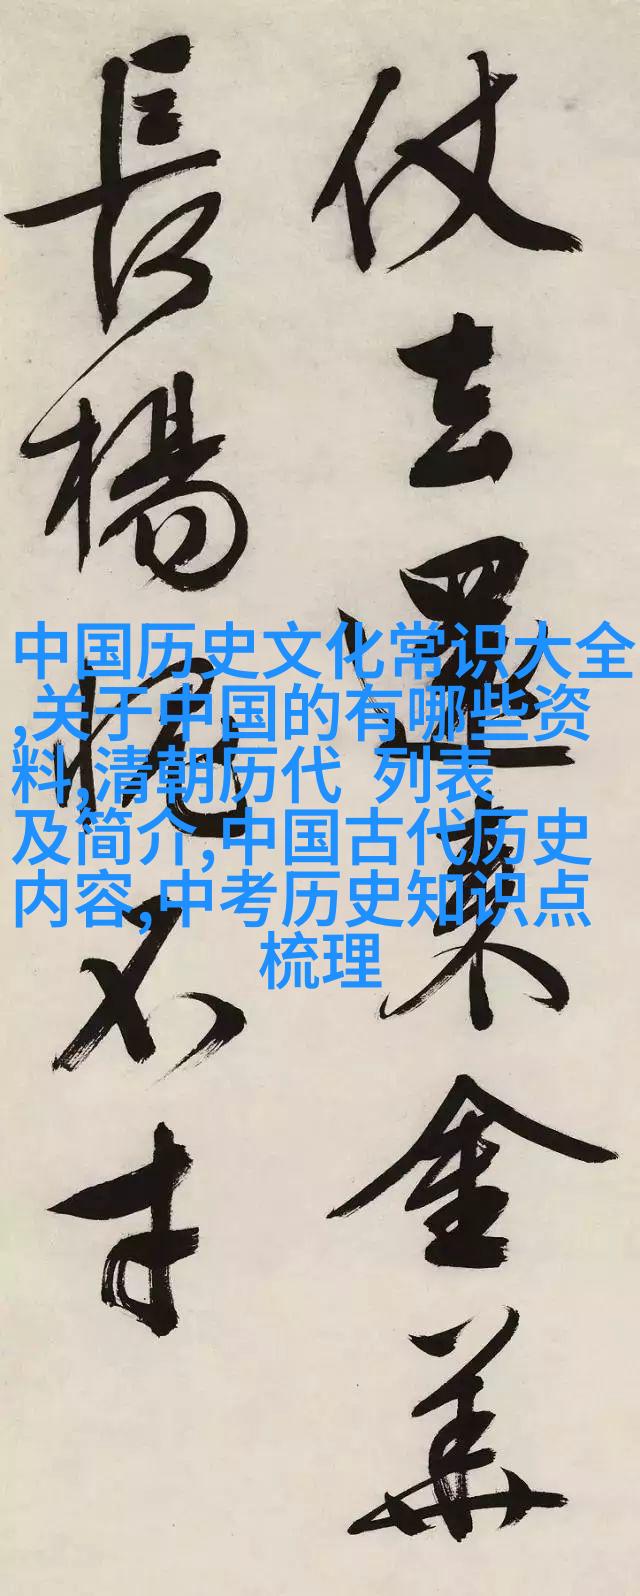 仗去還來金華
長楊愧不才
中国历史文化常识大全
,关于中国的有哪些资
料,清朝历代 列表
及简介,中国古代历史
内容,中考历史知识点
梳理